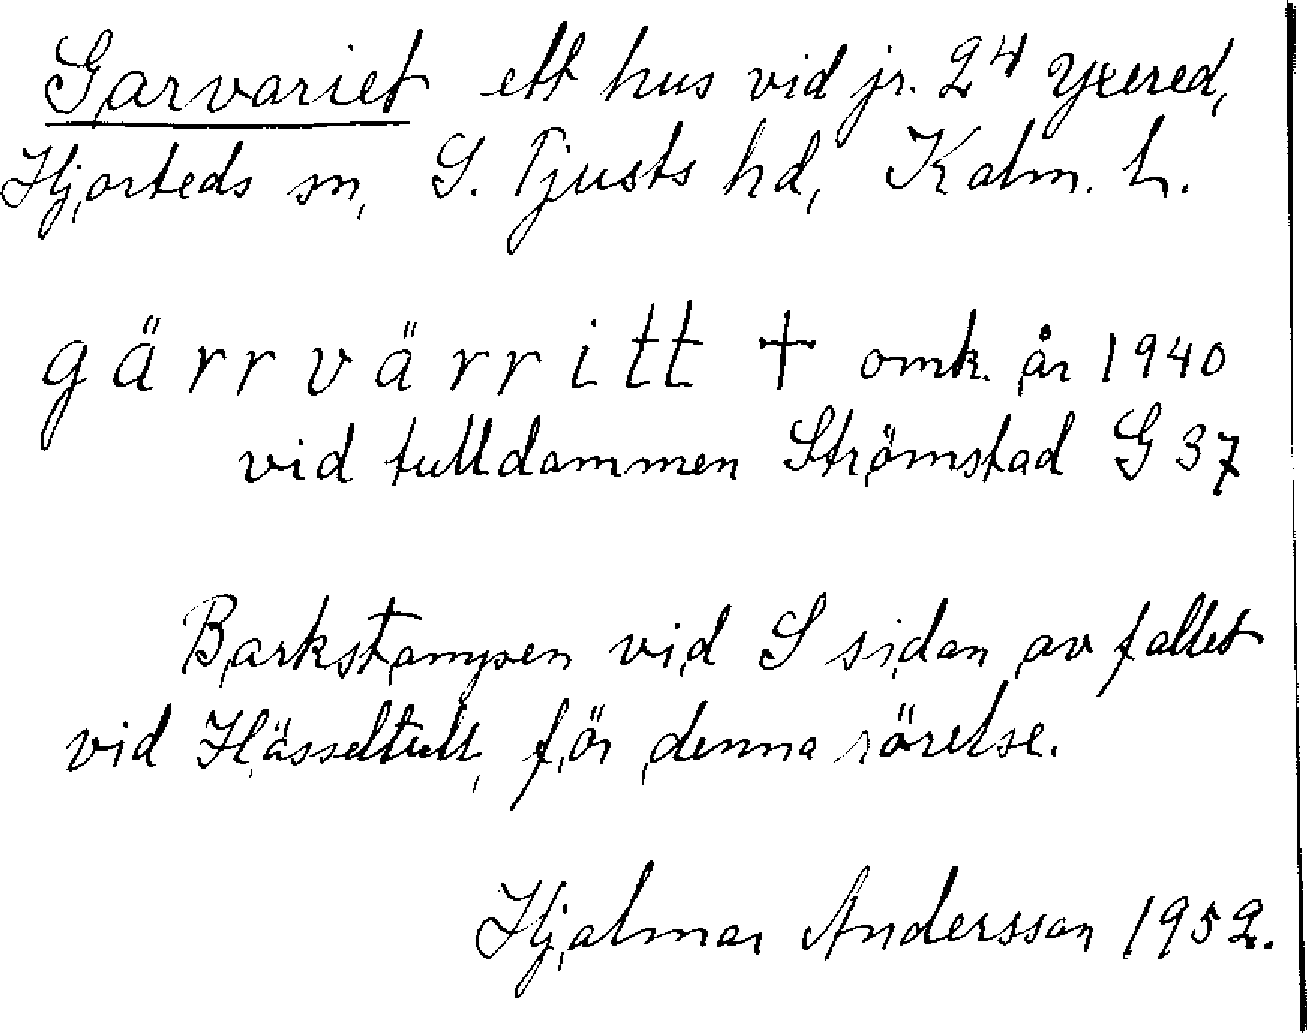 Garvariet ett hus vid jr. 24 Yxered,
Hjorteds sn, S. Tjusts hd, Kalm. L.
gärrvärritt + omk. år 1940
vid tulldammen Strömstad G 37
Barkstampen vid S sidan av fallet
vid Hässeltull, för denna rörelse.
Hjalmar Andersson 1952.